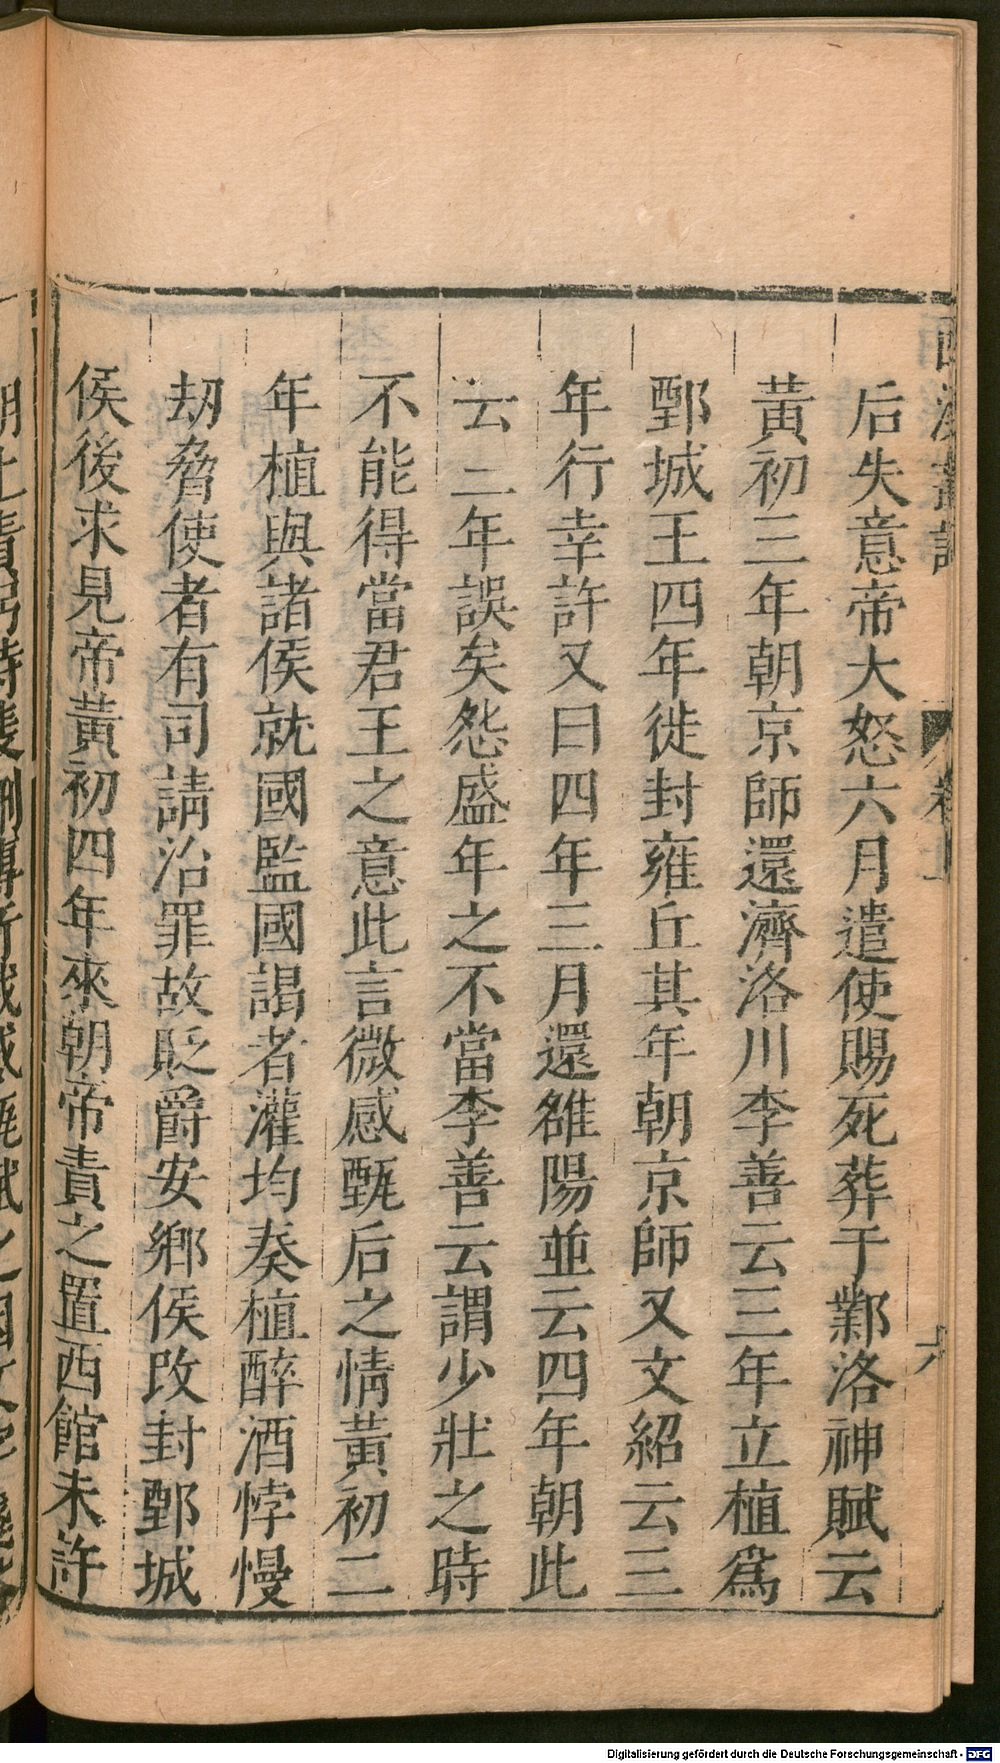 后失意帝大怒六月遣使賜死葬于鄴洛神賦云
黃初三年朝京師還濟洛川李善云三年立植爲
鄄城王四年徙封雍丘其年朝京師又文紹云三
年行幸許又曰四年三月還雒陽並云四年朝此
云二年誤矣怨盛年之不當李善云謂少壯之時
不能得當君王之意此言微感甄后之情黃初二
年植與諸侯就國監國謁者灌均奏植醉酒悖慢
刼脅使者有司請治罪故貶爵安鄉侯改封鄄城
侯後求見帝黃初四年來朝帝責之置西館未許
六
Digitalisierung gefördert durch die Deutsche Forschungsgemeinschaft - DFG